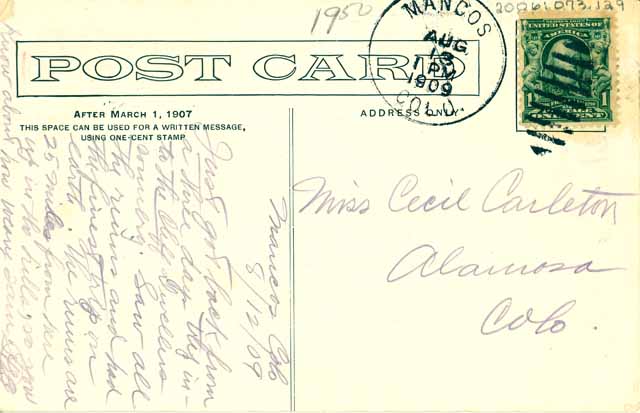 1950
20061.073.129
MANCOS
AUG
13
1 PM
1909
COLO.
POST CARD
AFTER MARCH 1, 1907
THIS SPACE CAN BE USED FOR A WRITTEN MESSAGE,
USING ONE-CENT STAMP
ADDRESS ONLY.
1 1
ONE CENT
Miss Cecil Carleton
Alamosa
Colo.
Mancos Colo
8/12/09
Just got back from
a three day trip in-
to the Cliff Dwellers
country. Saw all
the ruins and had
the finest trip on
earth. The ruins are
25 miles from here
up in the hills, so you
know about how